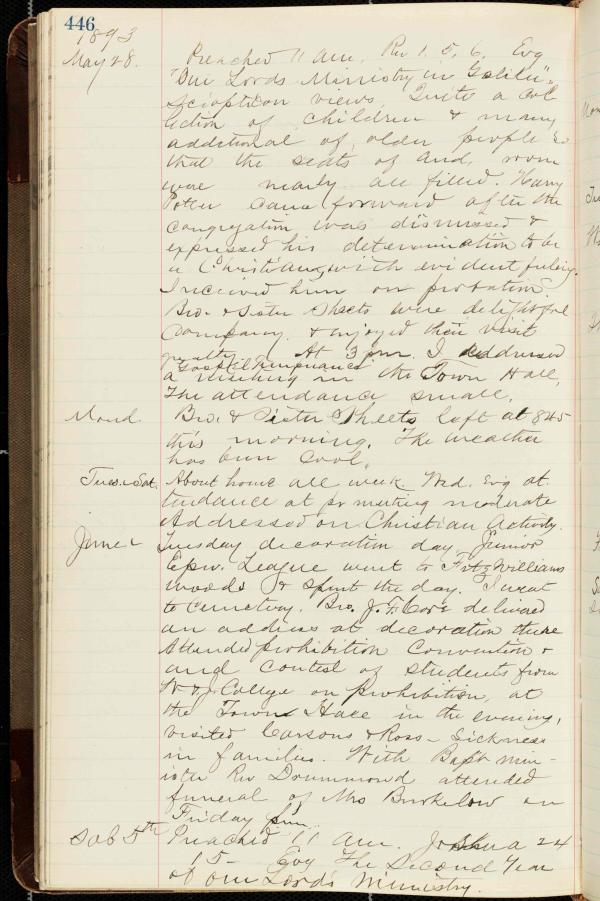 446
1893
May 28. Preached 11 am. Rev 1. 5. 6. Evg
"Our Lords Ministry in Galilee".
Sciopticon views. Quite a col
lection of children & many
additional of older people so
that the seats of aud. room
were nearly all filled. Harry
Potter came forward after the
congregation was dismissed &
expressed his determination to be
a Christian, with evident feeling.
I received him on probation
Bro. & Sister Sheets were delightful
company & enjoyed their visit
greatly. At 3 pm. I addressed
Gospel Temperance
a meeting in the Town Hall,
The attendance small.
Mond. Bro. & Sister Sheets left at 845
this morning. The weather
has been cool.
Tues.-Sat. About home all week Wed. Evg at
tendance at pr meeting moderate
Addressed on Christian Activity.
June Tuesday decoration day, Junior
Epw. League went to Fitz Williams
woods & spent the day. I went
to cemetery. Bro. J. T. delivered
an address at decoration there
Attended prohibition Convention &
aud contest of students from
W & J College on prohibition, at
the Town Hall in the evening,
visited Carsons & Ross - Sickness
in families. With Bapt min-
ister Rev Drummond attended
funeral of Mrs on
Friday pm.
Sab 5th Preached 11 am. Joshua 24
15 - Evg The Second Year
of our Lord's Ministry.